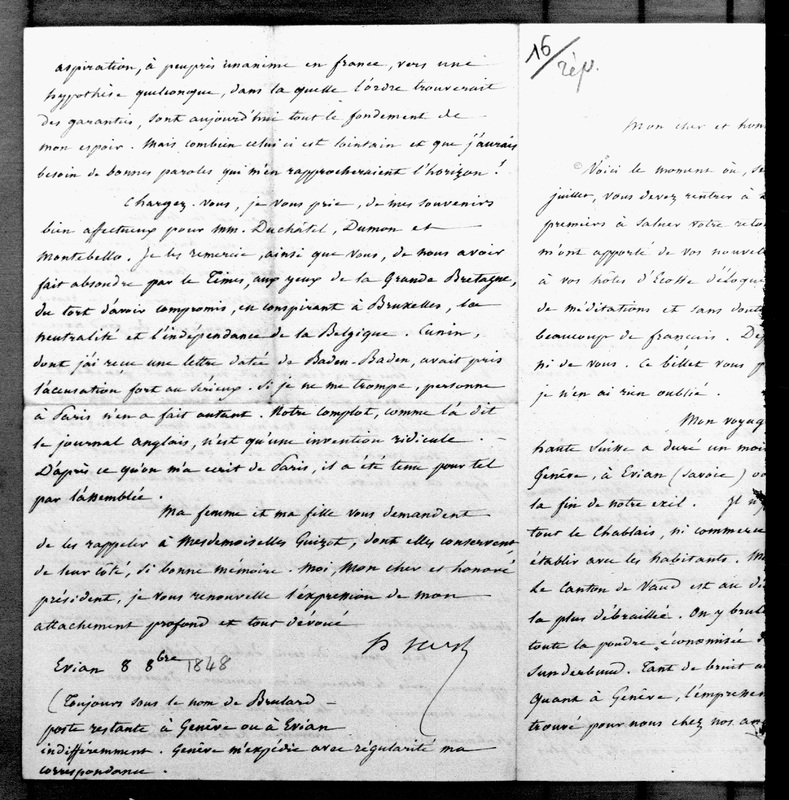 aspiration, à peu près unanime en france, vers une
hypothèse quelconque, dans la quelle l'ordre trouverait
des garanties, sont aujourd'hui tout le fondement de
mon espoir. Mais combien celui ci est lointain et que j'aurais
besoin de bonnes paroles qui m'en rapprocheraient l'horizon !
Chargez-vous, je vous prie, de mes souvenirs
bien affectueux pour mm. Duchâtel, Dumon et
Montebello. Je les remercie, ainsi que vous, de nous avoir
fait absoudre par le Times, aux yeux de la Grande Bretagne,
du tort d'avoir compromis, en conspirant à Bruxelles, la
neutralité et l'indépendance de la Belgique. Cunin,
dont j'ai reçu une lettre daté de Baden-Baden, avait pris
l'accusation fort au sérieux. Si je ne me trompe, personne
à Paris n'en a fait autant. Notre complot, comme l'a dit
le journal anglais, n'est qu'une invention ridicule. —
D'après ce qu'on m'a écrit de Paris, il a été tenu pour tel
par l'assemblée.
Ma femme et ma fille vous demandent
de les rappeler à Mesdemoiselles Guizot, dont elles conservent,
de leur côté, si bonne mémoire. Moi, Mon cher et honoré
président, je vous renouvelle l'expression de mon
attachement profond et tout dévoué
Evian 8 8bre 1848
(Toujours sous le nom de Brulard —
poste restante à Genêve ou à Evian
indifféremment. Genêve m'expédie avec régularité ma
correspondance.
16/
rép.
Mon cher et hon
Voici le moment où, se
juillet, vous devez rentrer à
premiers à saluer votre reto
m'ont apporté de vos nouvel
à vos hôtes d'Ecosse d'éloque
de méditations et sans dout
beaucoup de francais. De
ni de vous. Ce billet vous p
je n'en ai rien oublié.
Mon voyag
haute Suisse a duré un moi
Genêve, à Evian (savoie) vo
la fin de notre exil. Il n'y
tout le Chablais, ni commerce
établir avec les habitants. M
Le Canton de Vaud est au d
la plus débraillée. On y brul
toute la poudre économisée
Sunderbund. Tant de bruit a
Quant à Genêve, l'empresse
trouvé pour nous chez nos an